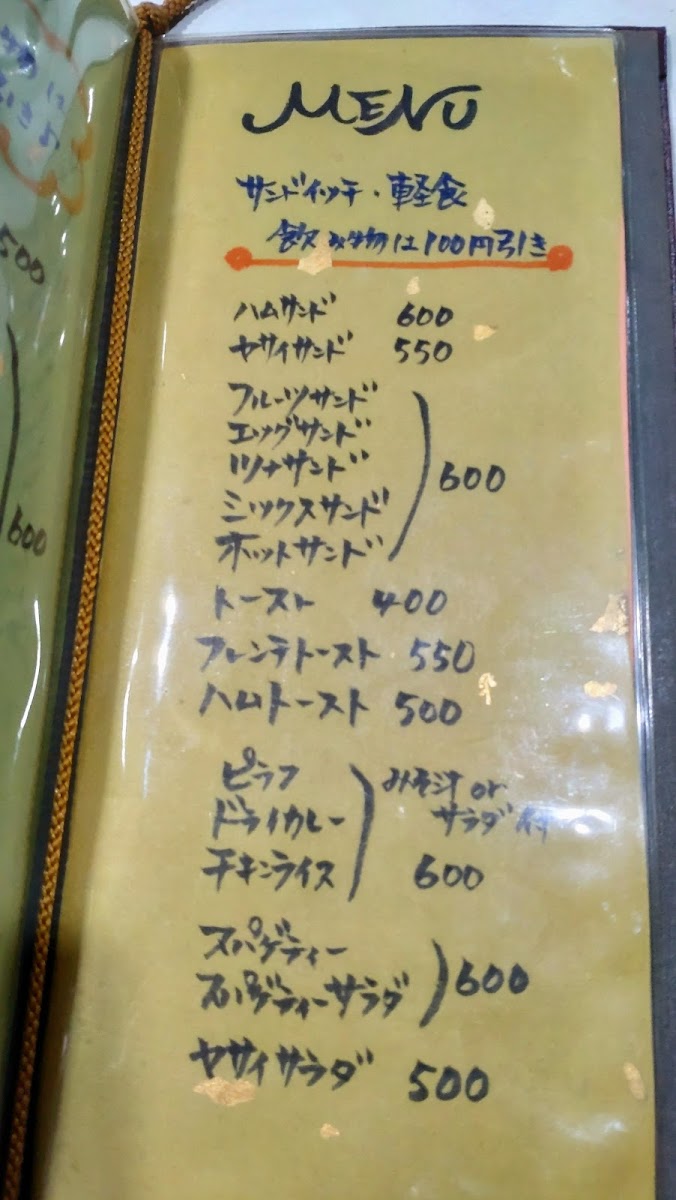 MENU
サンドイッチ・軽食
飲み物は100円引き
ハムサンド 600
ヤサイサンド 550
フルーツサンド
エッグサンド
ツナサンド
ミックスサンド
ホットサンド
600
トースト 400
フレンチトースト 550
ハムトースト 500
ピラフ
ドライカレー
チキンライス
みそ汁or
サラダ付
600
スパゲティー
スパゲティーサラダ
600
ヤサイサラダ 500
500
600